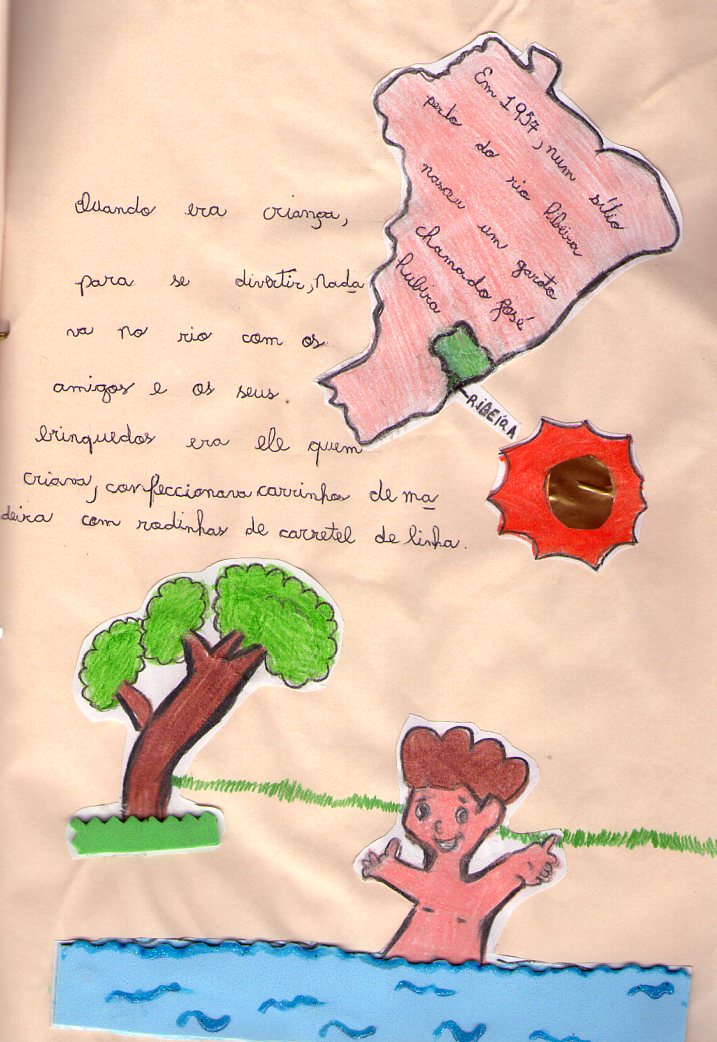 Em 1957, num sítio
perto do rio Ribeira
nasceu um garoto
chamado José
Rubira
RIBEIRA
Quando era criança,
para se divertir, nada
va no rio com os
amigos e os seus
brinquedos era ele quem
criava, confeccionava carrinhos de ma
deira com rodinhas de carretel de linha.